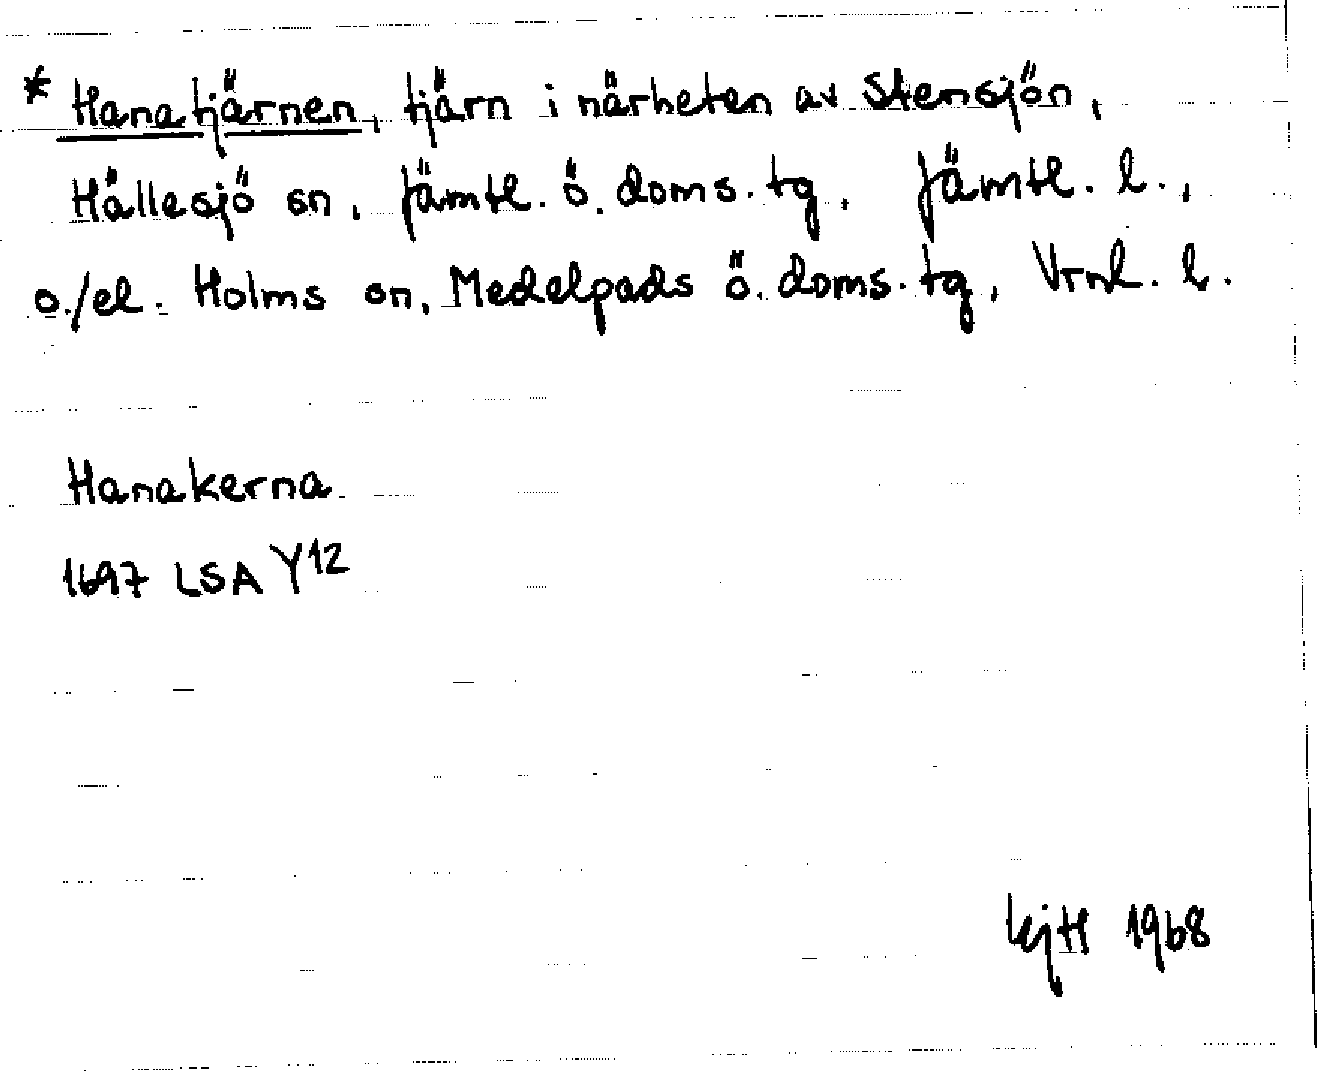 * Hanatjärnen, tjärn i närheten av Stensjön,
Hällesjö sn, Jämtl. ö. doms. tg, Jämtl. l.,
o./el. Holms sn, Medelpads ö. doms. tg, Vrnl. l.
Hanakerna
1697 LSA Y12
1968